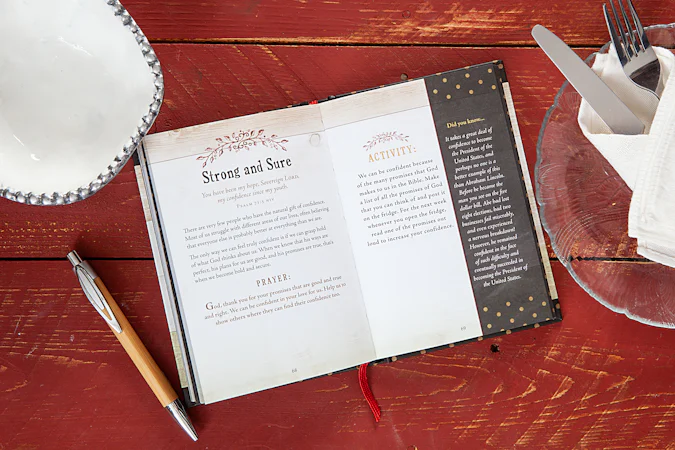 Strong and Sure
You have been my hope, Sovereign LORD,
my confidence since my youth.
PSALM 71:5 NIV
There are very few people who have the natural gift of confidence.
Most of us struggle with different areas of our lives, often believing
that everyone else is probably better at everything than we are.
The only way we can feel truly confident is if we can grasp hold
of what God thinks about us. When we know that his ways are
perfect, his plans for us are good, and his promises are true, that's
when we become bold and secure.
PRAYER:
God, thank you for your promises that are good and true
and right. We can be confident in your love for us. Help us to
show others where they can find their confidence too.
ACTIVITY:
We can be confident because
of the many promises that God
makes to us in the Bible. Make
a list of all the promises of God
that you can think of and post it
on the fridge. For the next week
whenever you open the fridge,
read one of the promises out
loud to increase your confidence.
Did you know...
It takes a great deal of
confidence to become
the President of the
United States, and
perhaps no one is a
better example of this
than Abraham Lincoln.
Before he became the
man you see on the five
dollar bill, Abe had lost
eight elections, had two
businesses fail miserably,
and even experienced
a nervous breakdown!
However, he remained
confident in the face
of such difficulty and
eventually succeeded in
becoming the President of
the United States.